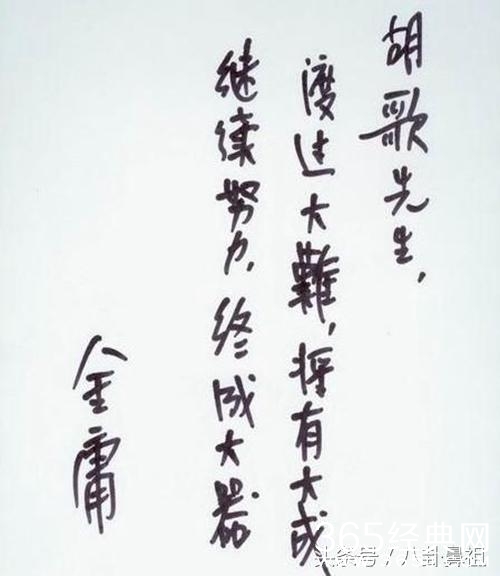 胡歌先生，
渡过大難，将有大成
继续努力，终成大器
金庸
365经典网
头条号/八卦鼻祖